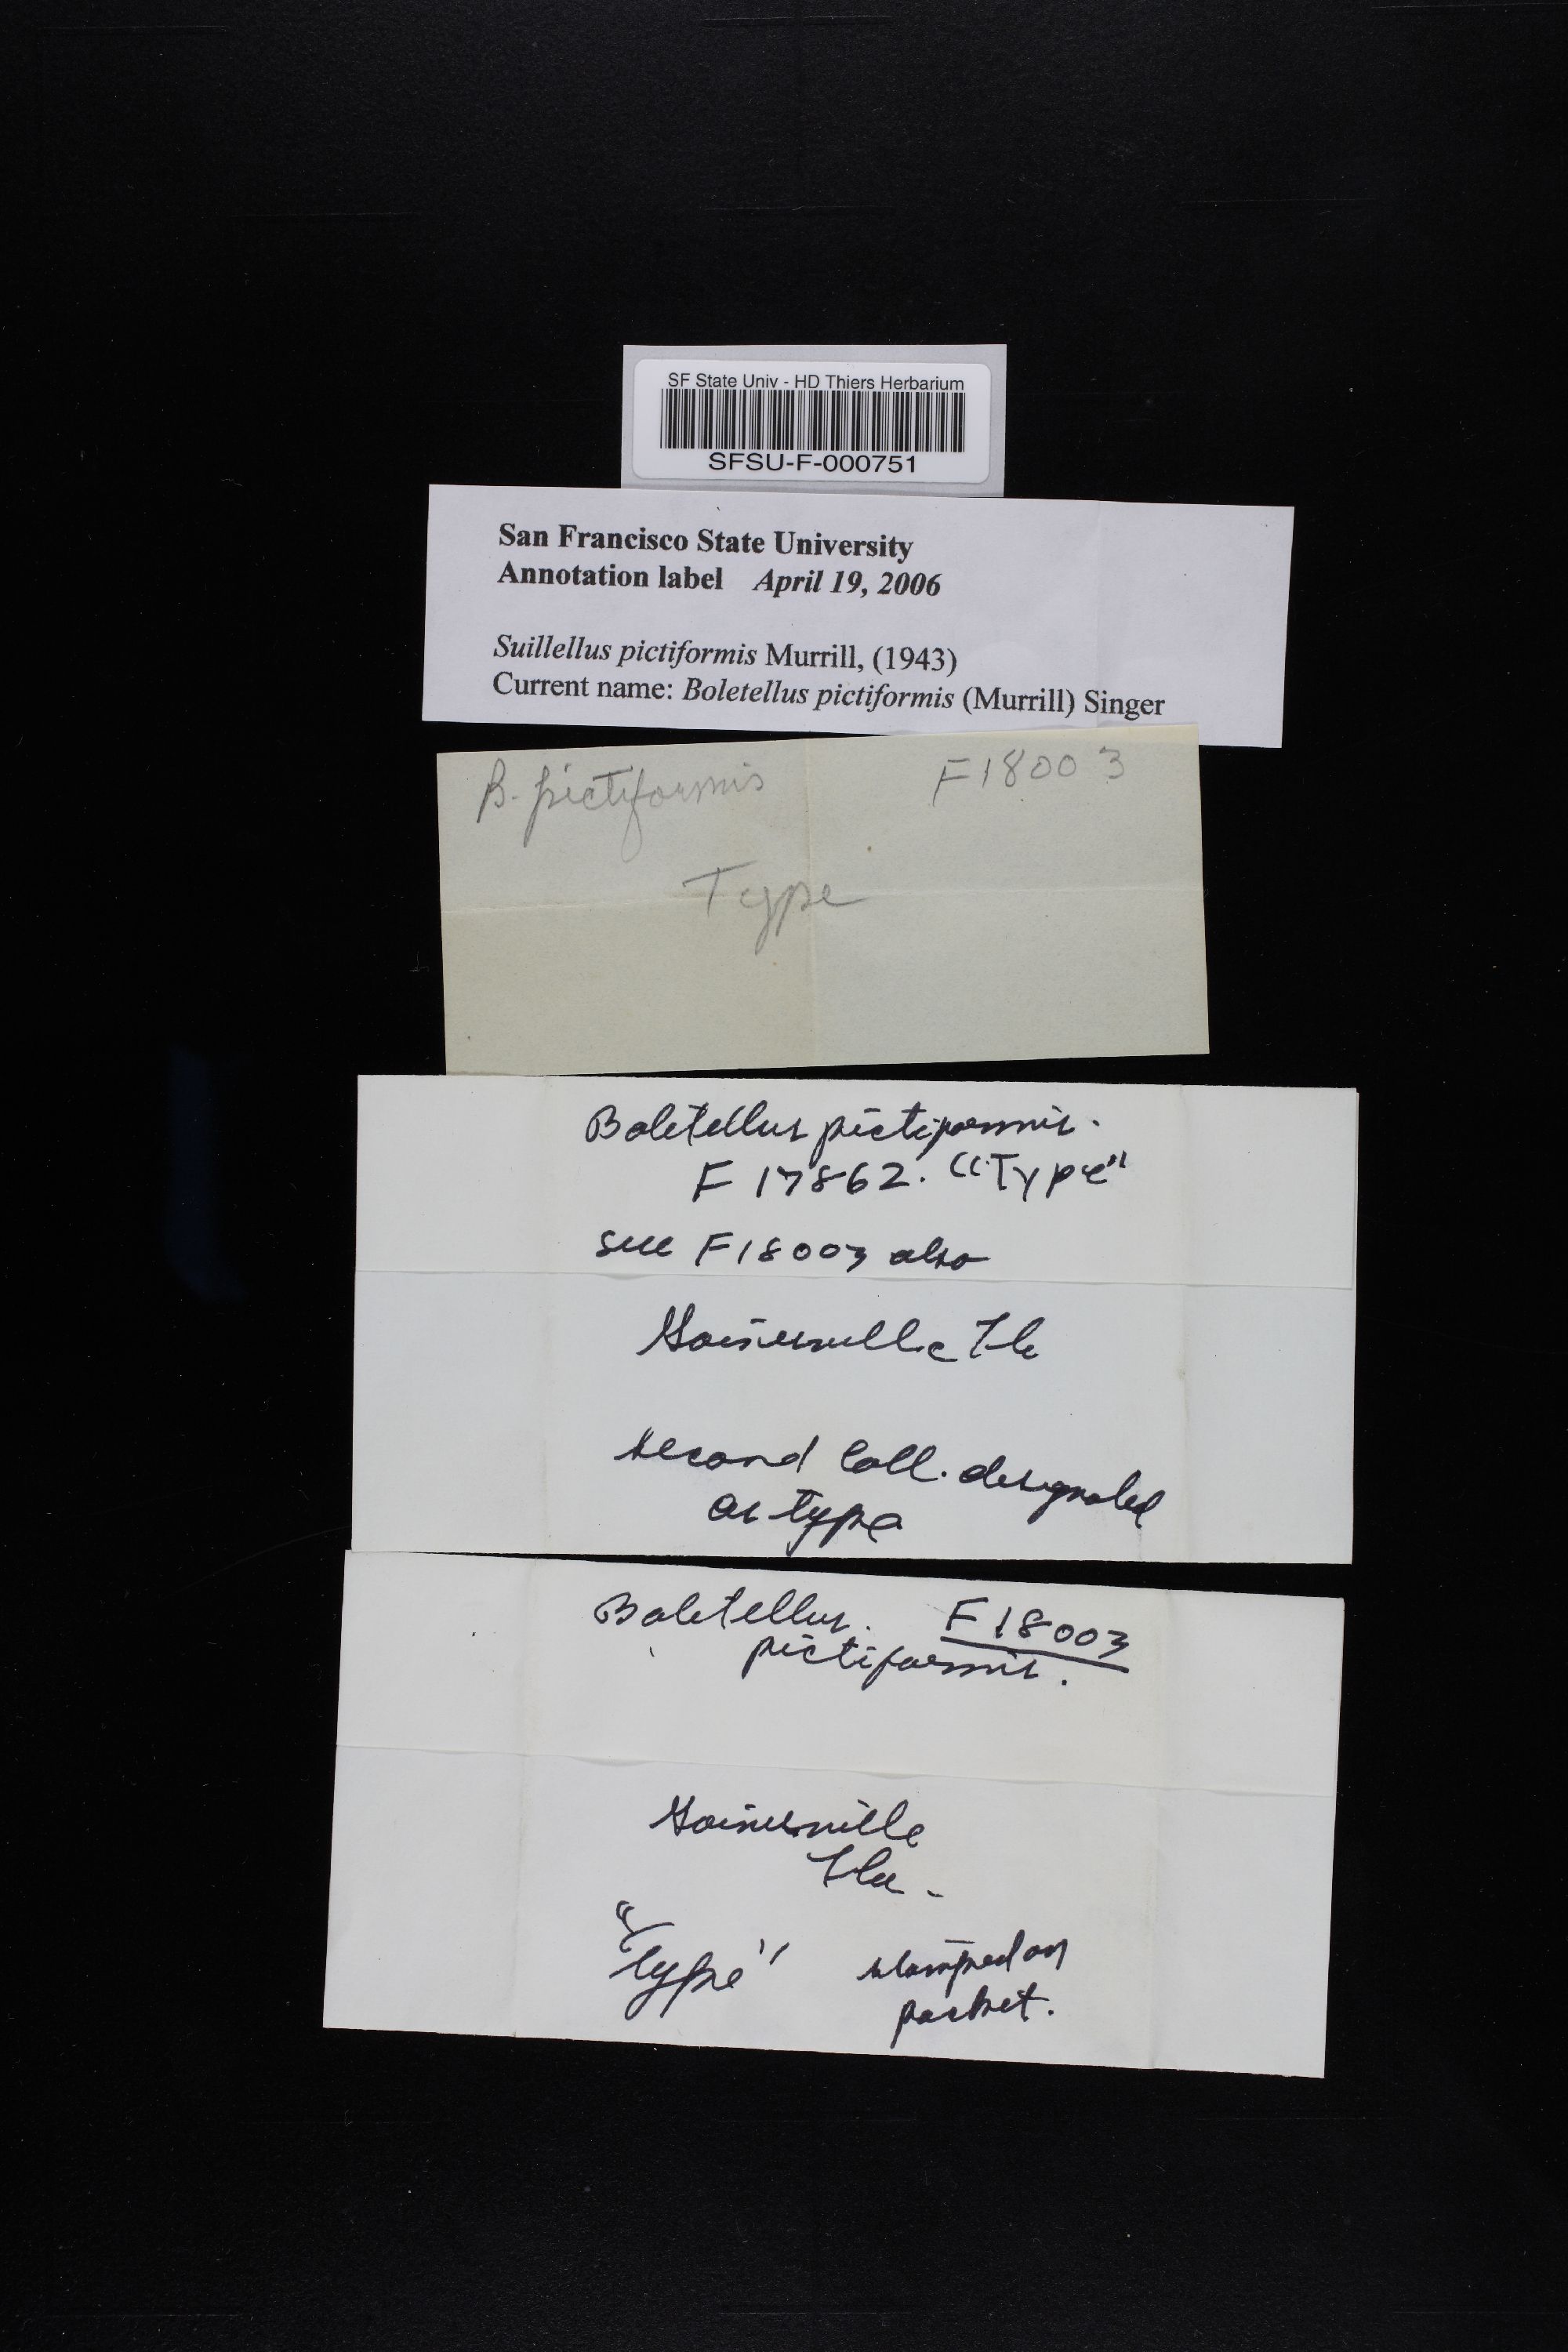 SF State Univ - HD Thiers Herbarium
SFSU-F-000751
San Francisco State University
Annotation label April 19, 2006
Suillellus pictiformis Murrill, (1943)
Current name: Boletellus pictiformis (Murrill) Singer
B. pictiformis F18003
Type
Boletellus pictiformis.
F 17862. "Type"
see F18003 also
Gainesville Fla
second Coll. designated
as type
Boletellus. F 18003
pictiformis.
Gainesville
Fla.
"Type" stamped on
packet.